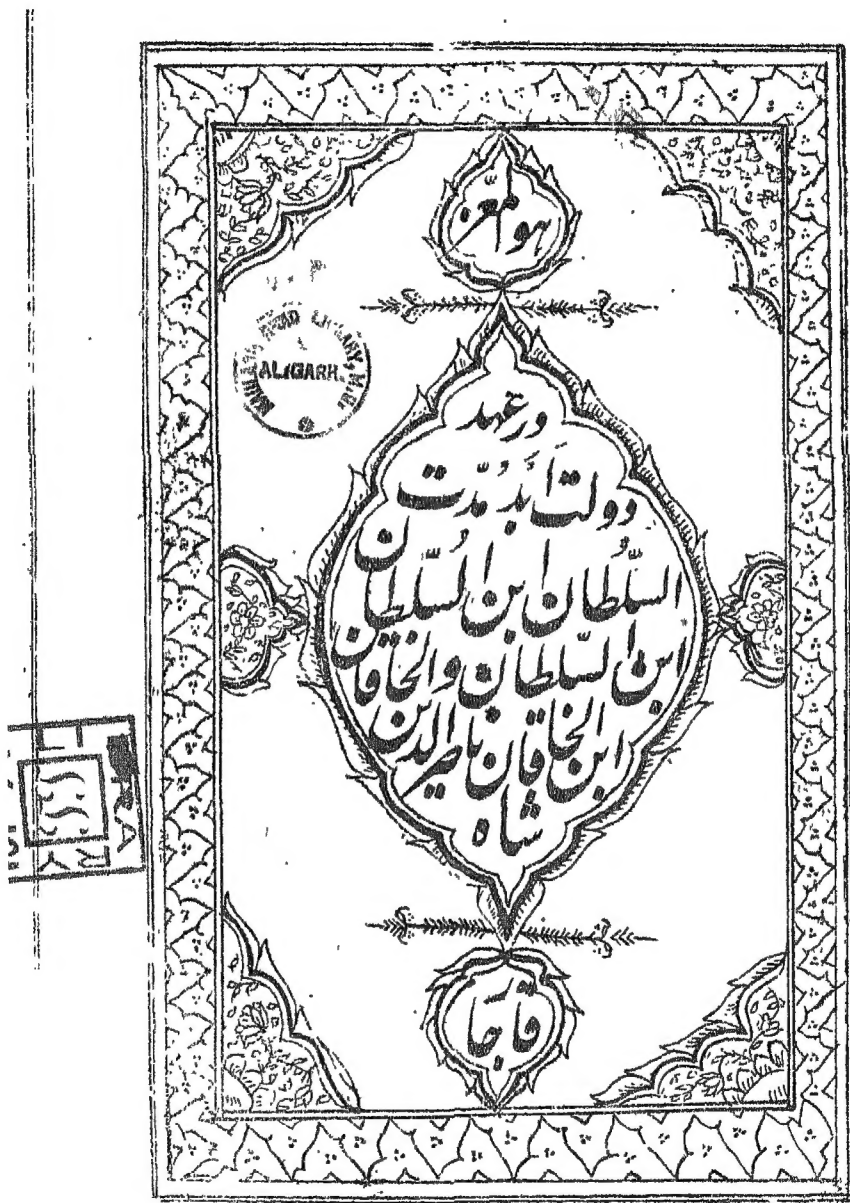 هو المعزّ
در عهد
دولت اَبَد مُدّت
السُّلطان ابن السُّلطان
ابن السّلطان والخاقان
ابن الخاقان ناصرالدین
شاه
قاجار
ALIGARH.